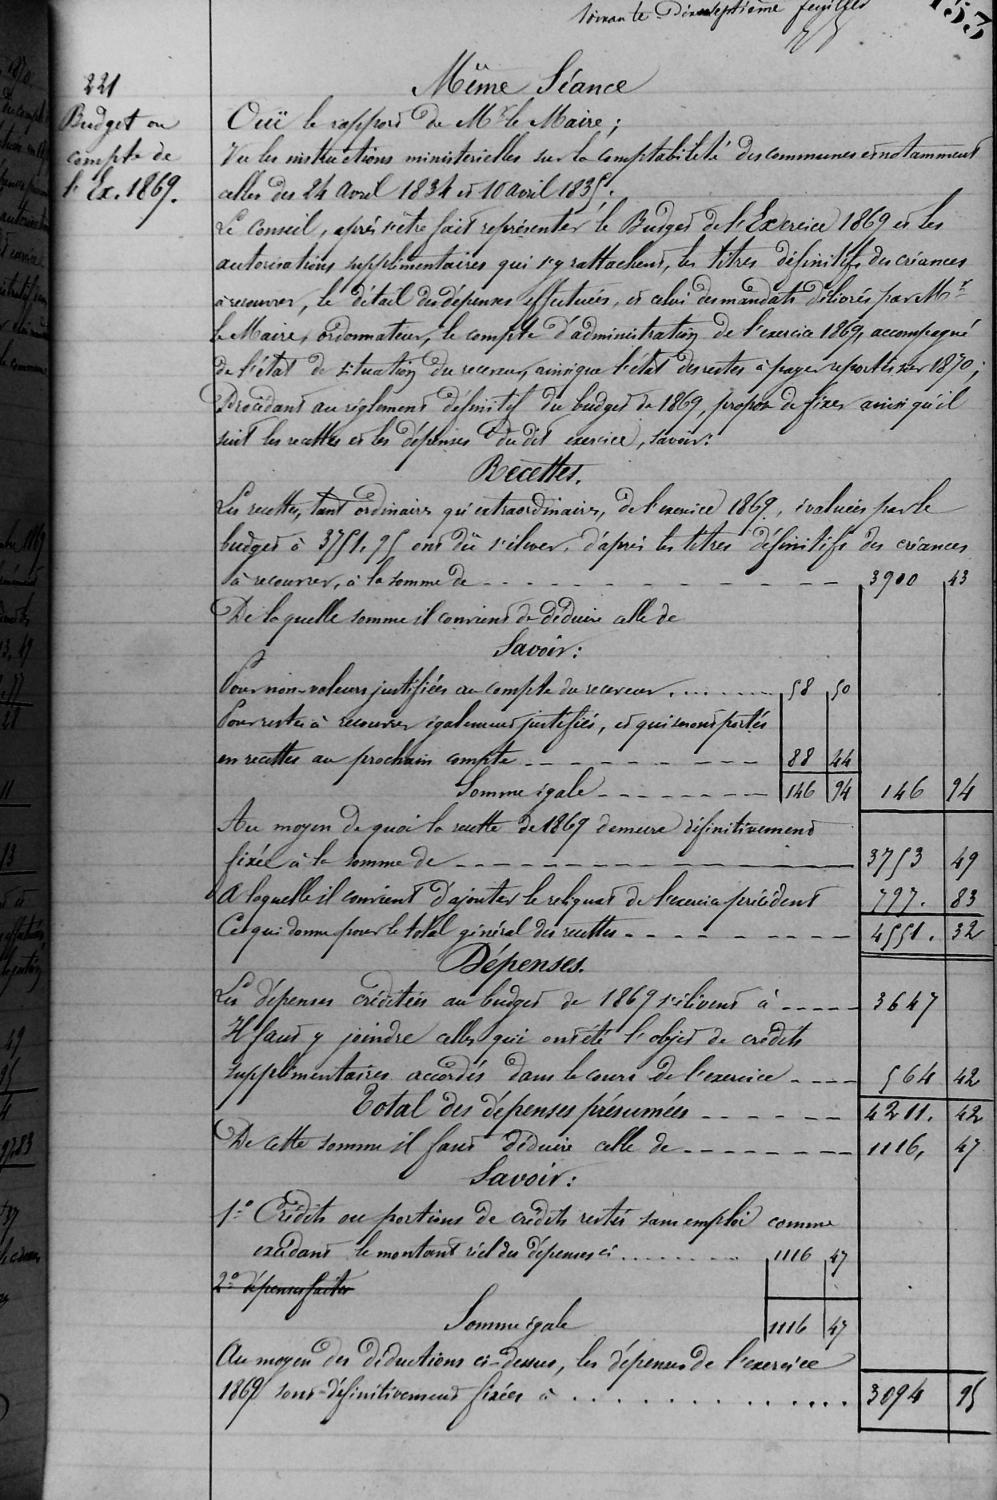 Soixante Dix septième feuillet
153
221
Budget ou
compte de
l'Ex. 1869.
Même Séance
Ouï le rapport de Mr le Maire;
Vu les instructions ministérielles sur la comptabilité des communes et notamment
celles des 24 avril 1834 et 10 avril 1835.
Le Conseil, après s'être fait représenter le Budget de l'Exercice 1869 et les
autorisations supplémentaires qui s'y rattachent, les titres définitifs des créances
à recouvrer, le détail des dépenses effectuées, et celui des mandats délivrés par Mr
le Maire, ordonnateur, le compte d'administration de l'exercice 1869, accompagné
de l'état de situation du receveur, ainsi que l'état des restes à payer reportés sur 1870;
Procédant au règlement définitif du budget de 1869, propose de fixer ainsi qu'il
suit les recettes et les dépenses du dit exercice, savoir:
Recettes.
Les recettes, tant ordinaires qu'extraordinaires, de l'exercice 1869, évaluées par le
budget à 3751.95 ont dû s'élever, d'après les titres définitifs des créances
à recouvrer, à la somme de 3900 43
De laquelle somme il convient de déduire celle de
Savoir:
Pour non-valeurs justifiées au compte du receveur 58 50
Pour restes à recouvrer également justifiés, et qui seront portés
en recettes au prochain compte 88 44
Somme égale 146 94 146 94
Au moyen de quoi la recette de 1869 demeure définitivement
fixée à la somme de 3753 49
A laquelle il convient d'ajouter le reliquat de l'exercice précédent 797. 83
Ce qui donne pour le total général des recettes 4551. 32
Dépenses.
Les dépenses créditées au budget de 1869 s'élèvent à 3647
Il faut y joindre celles qui ont été l'objet de crédits
supplémentaires accordés dans le cours de l'exercice 564 42
Total des dépenses présumées 4211. 42
De cette somme il faut déduire celle de 1116, 47
Savoir:
1.° Crédits ou portions de crédits restés sans emploi comme
excédant le montant réel des dépenses ci 1116 47
2.° dépenses faites
Somme égale 1116 47
Au moyen des déductions ci-dessus, les dépenses de l'exercice
1869 sont définitivement fixées à 3094 95